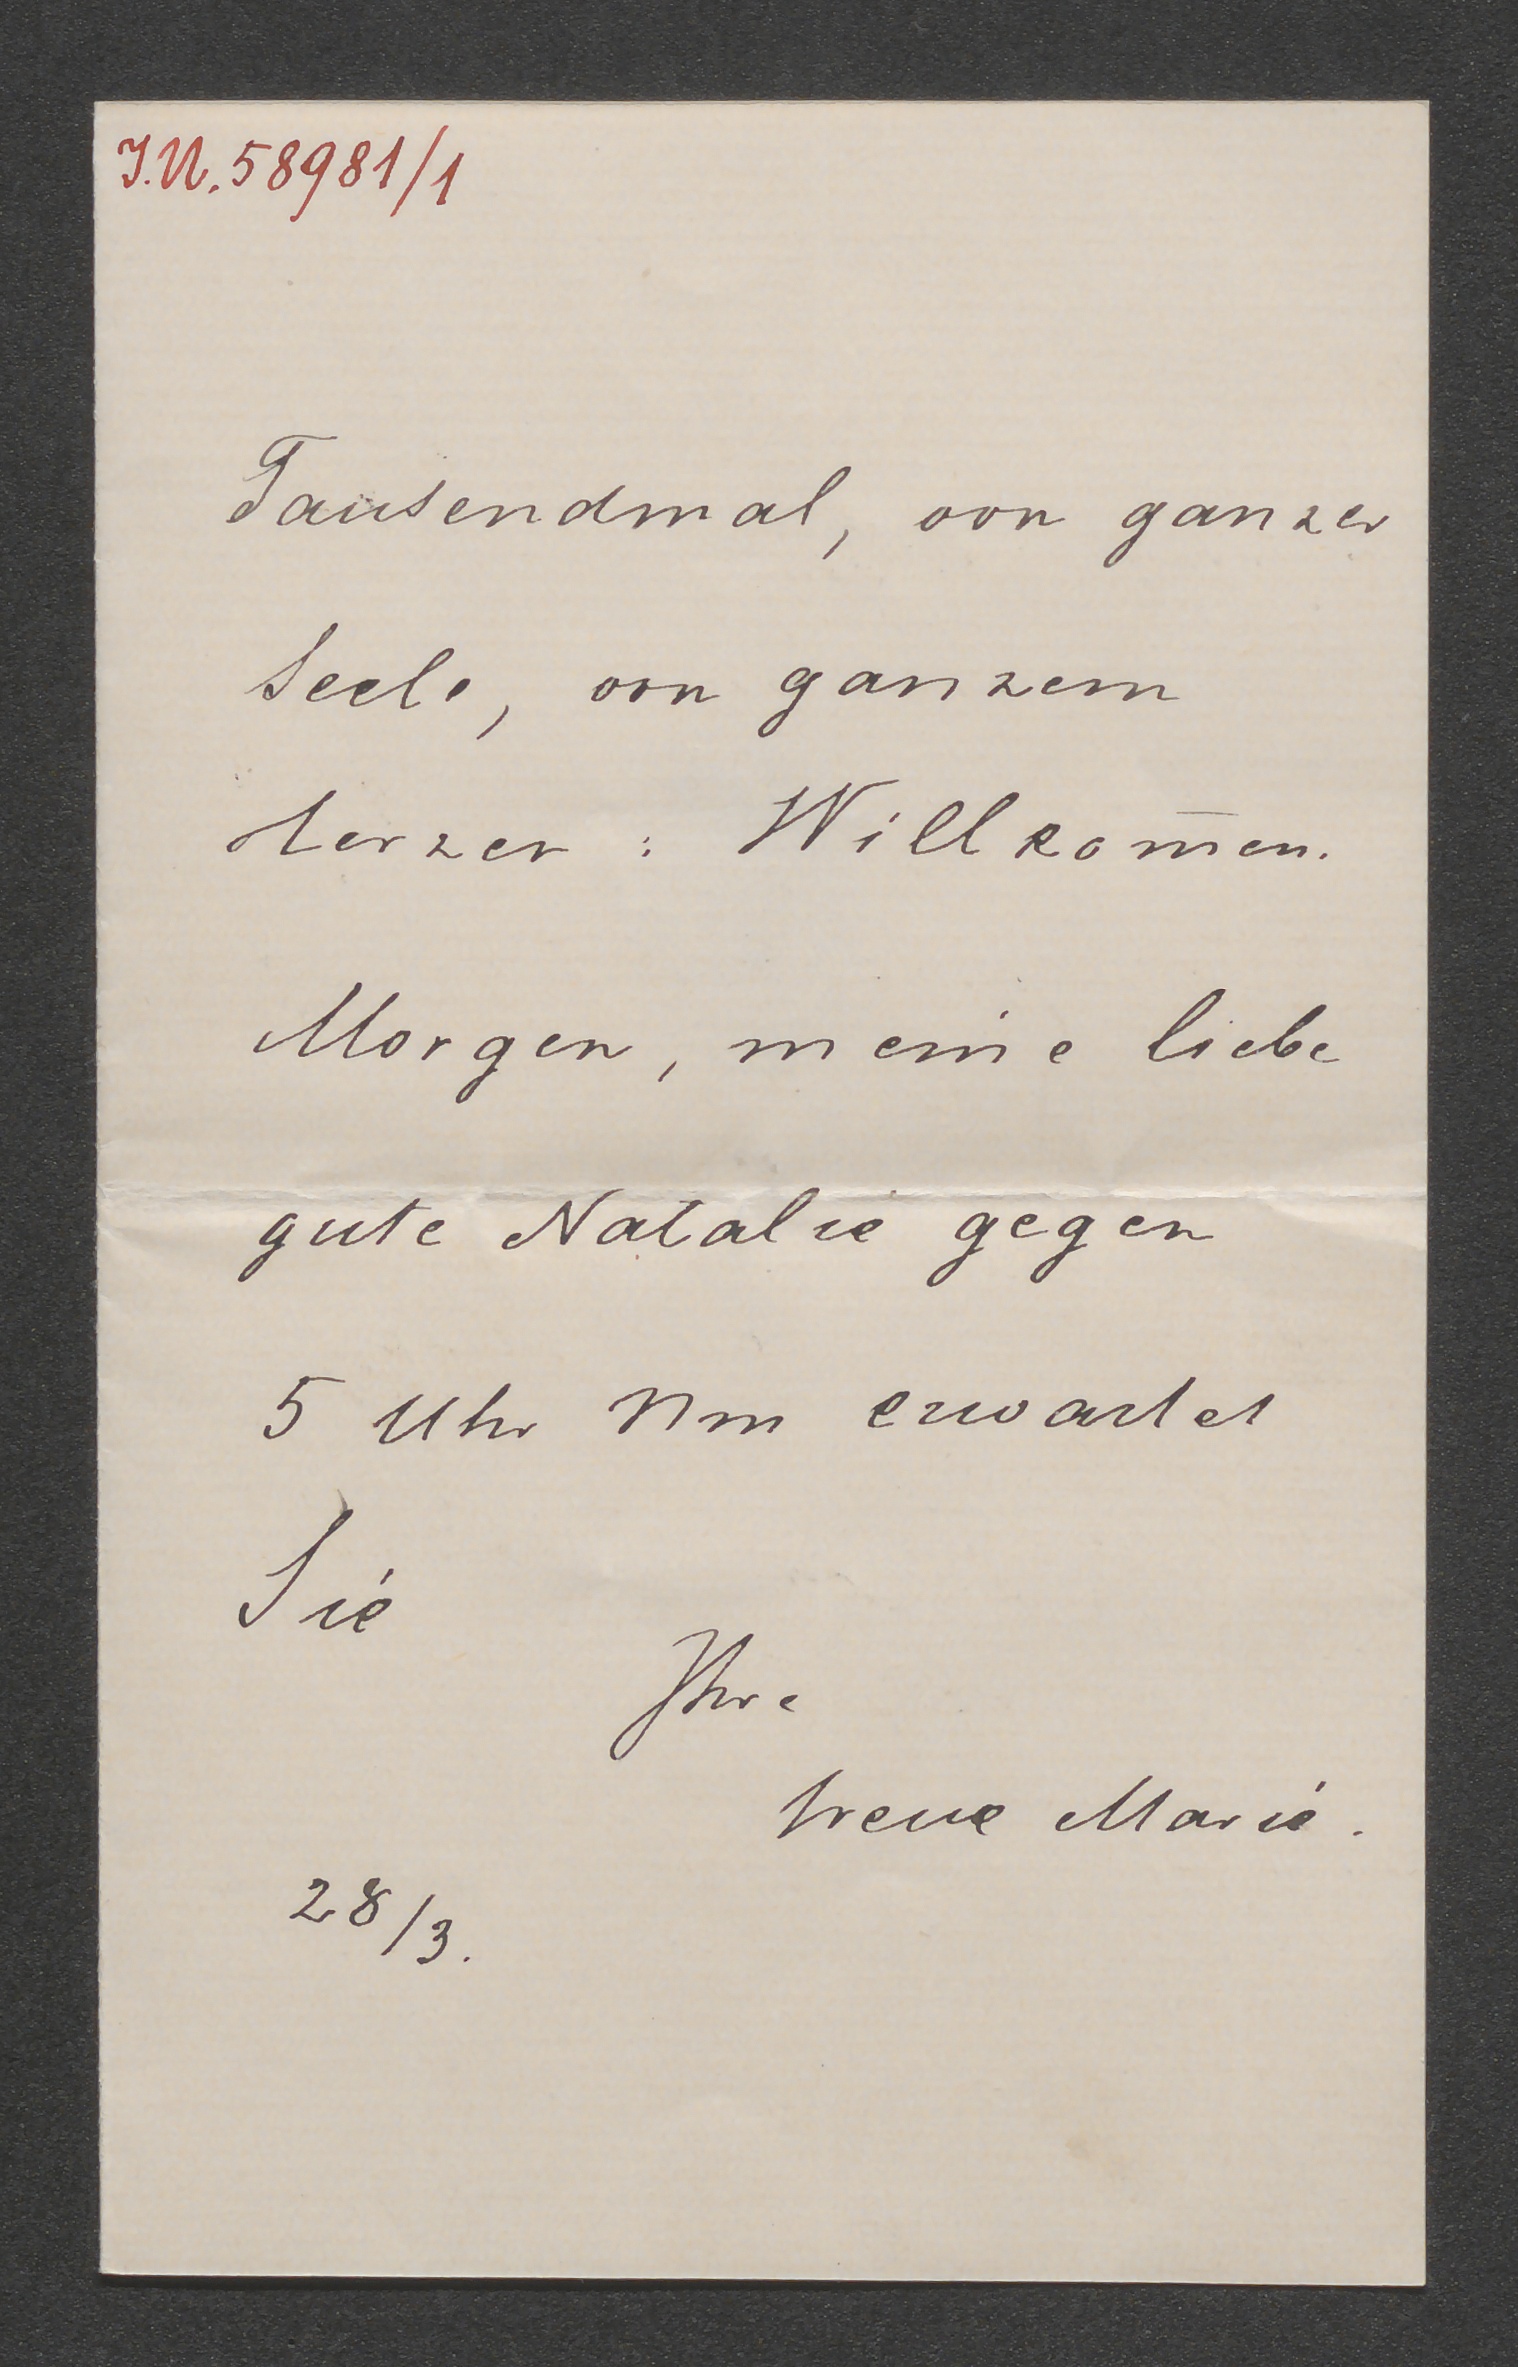 I.N. 58981/1
Tausendmal, von ganzer
Seele, von ganzem
Herzen: Willkom̄en.
Morgen, meine liebe
gute Natalie gegen
5 Uhr Nm erwartet
Sie
Ihre
treue Marie.
28/3.